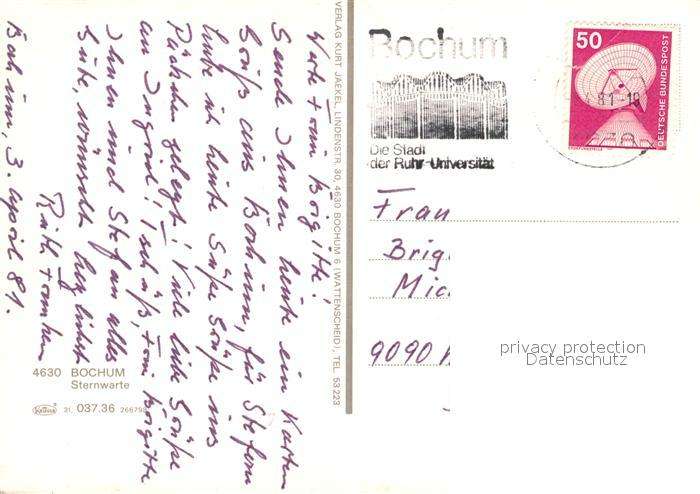 Bochum
Die Stadt
der Ruhr-Universität
50
DEUTSCHE BUNDESPOST
81-19
VERLAG KURT JAEKEL, LINDENSTR. 30, 4630 BOCHUM 6 (WATTENSCHEID), TEL. 53223
Werte Frau Brigitte!
Sende Ihnen heute ein Karten
Gruß aus Bochum, für Stefan
habe ich heute Süße Grüße ins
Päckchen gelegt! Viele liebe Grüße
an Ingrid! Tschüß, Frau Brigitte
Ihnen und Stefan alles
Gute, wünscht herzlichst
Ruth
Bochum, 3. April 81.
Frau
Brig
Mic
9090
4630 BOCHUM
Sternwarte
Krüger
21. 037.36 266798
privacy protection
Datenschutz